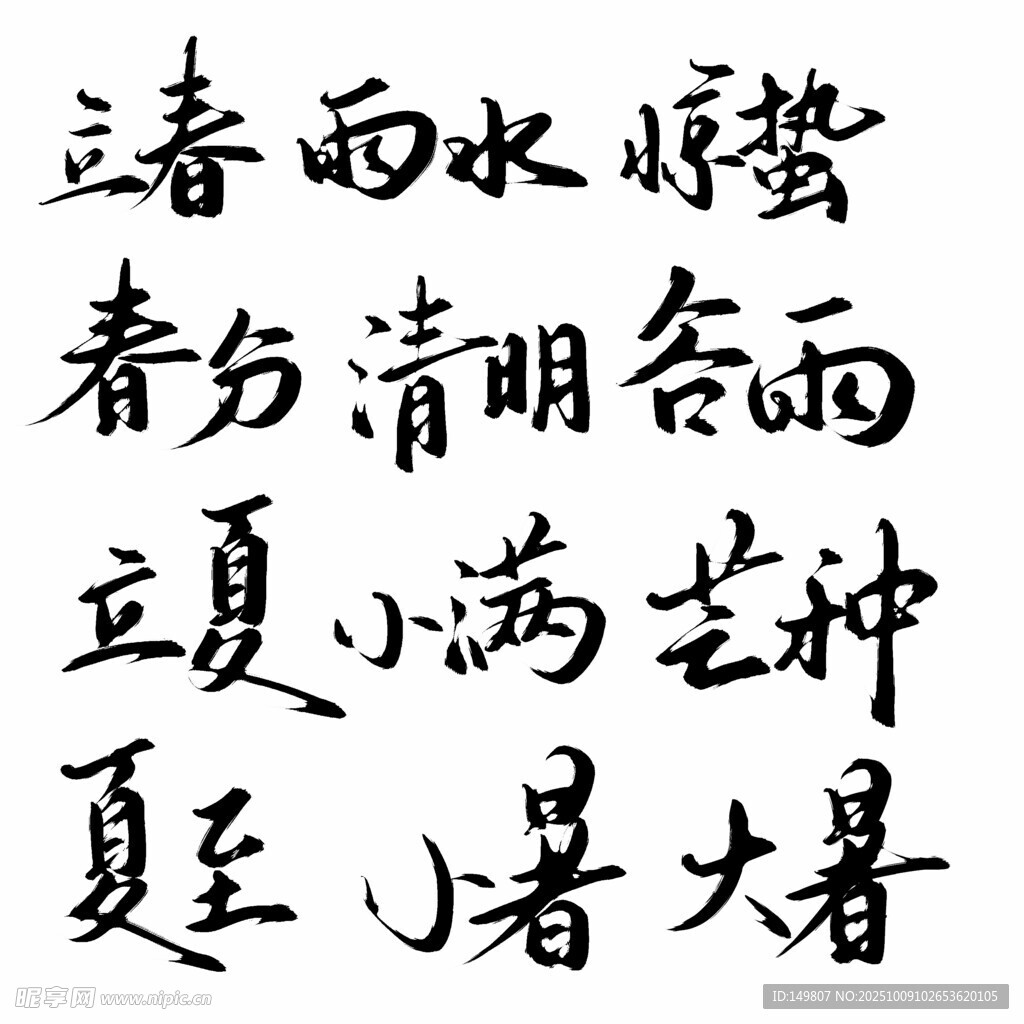 立春 雨水 惊蛰
春分 清明 谷雨
立夏 小满 芒种
夏至 小暑 大暑
昵享网 www.nipic.cn
ID:149807 NO:20251009102653620105